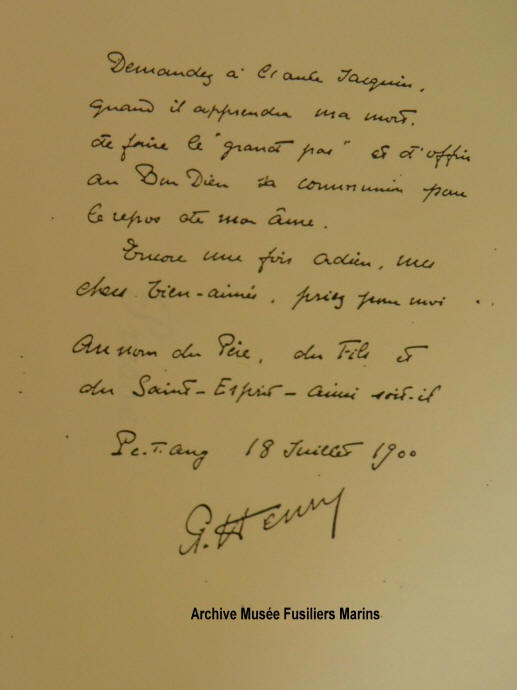 Demandez à Claude Jacquin,
quand il apprendra ma mort,
de faire le "grand pas" et d'offrir
au Bon Dieu sa communion pour
le repos de mon âme.
Encore une fois adieu, mes
chers bien-aimés, priez pour moi ..
Au nom du Père, du Fils et
du Saint-Esprit - ainsi soit-il
Pe-Tang 18 Juillet 1900
P. Henry
Archive Musée Fusiliers Marins